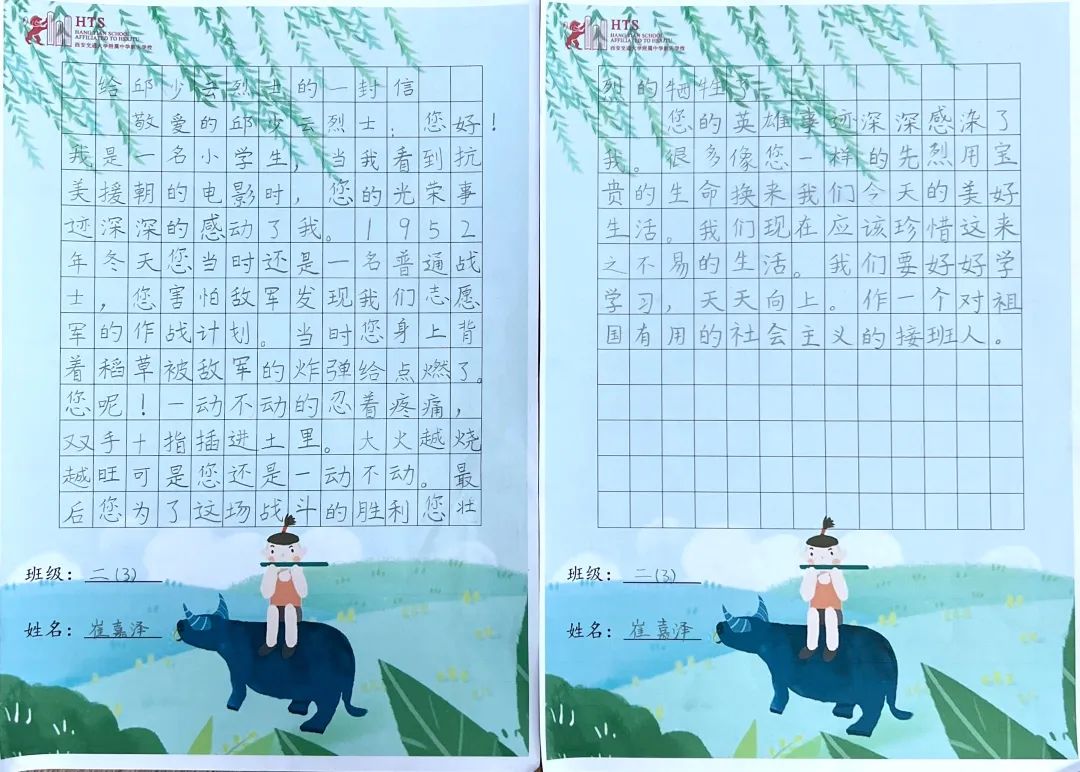 HTS
HANGTIAN SCHOOL
AFFILIATED TO HSXJTU
西安交通大学附属中学航天学校
给邱少云烈士的一封信
敬爱的邱少云烈士：您好！
我是一名小学生，当我看到抗
美援朝的电影时，您的光荣事
迹深深的感动了我。1952
年冬天您当时还是一名普通战
士，您害怕敌军发现我们志愿
军的作战计划。当时您身上背
着稻草被敌军的炸弹给点燃了。
您呢！一动不动的忍着疼痛，
双手十指插进土里。大火越烧
越旺可是您还是一动不动。最
后您为了这场战斗的胜利您壮
班级：二(3)
姓名：崔嘉泽
HTS
HANGTIAN SCHOOL
AFFILIATED TO HSXJTU
西安交通大学附属中学航天学校
烈的牺牲了。
您的英雄事迹深深感染了
我。很多像您一样的先烈用宝
贵的生命换来我们今天的美好
生活。我们现在应该珍惜这来
之不易的生活。我们要好好学
学习，天天向上。作一个对祖
国有用的社会主义的接班人。
班级：二(3)
姓名：崔嘉泽